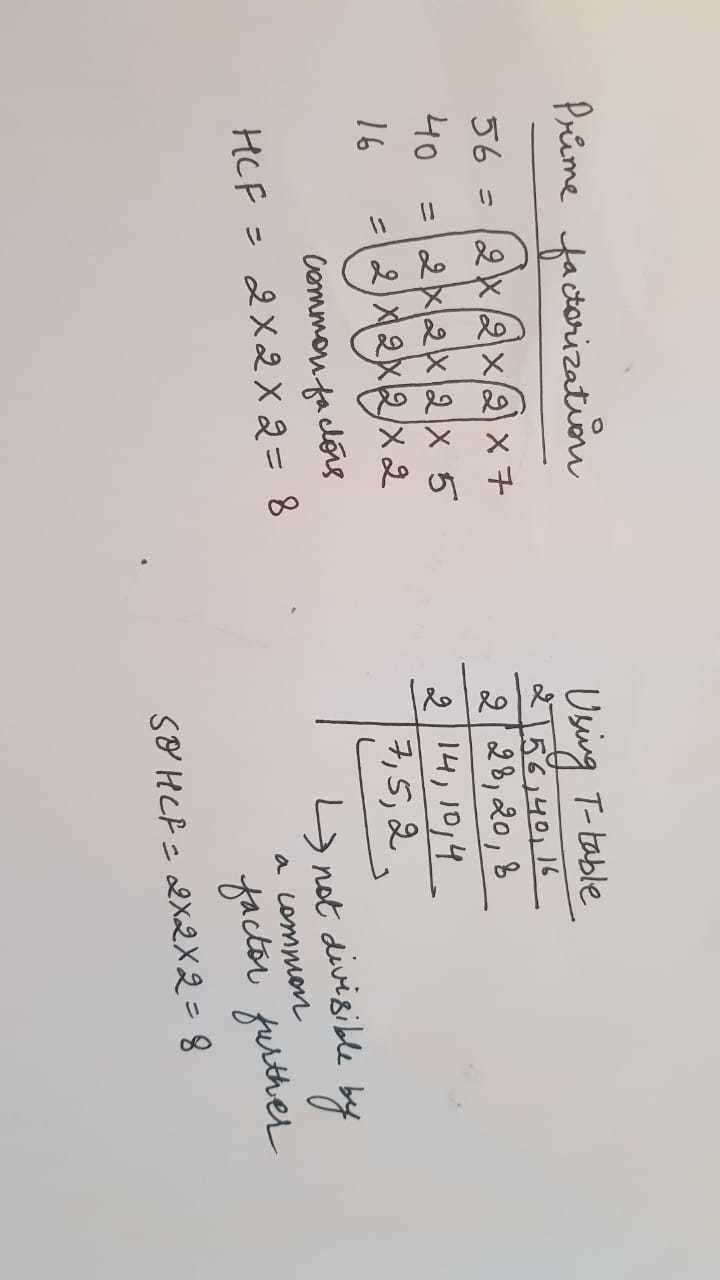 Prime factorization
56 = 2 × 2 × 2 × 7
40 = 2 × 2 × 2 × 5
16 = 2 × 2 × 2 × 2
common factors
HCF = 2 × 2 × 2 = 8
Using T-table
2 | 56, 40, 16
2 | 28, 20, 8
2 | 14, 10, 4
7, 5, 2
↳ not divisible by
a common
factor further
SO HCF = 2×2×2 = 8